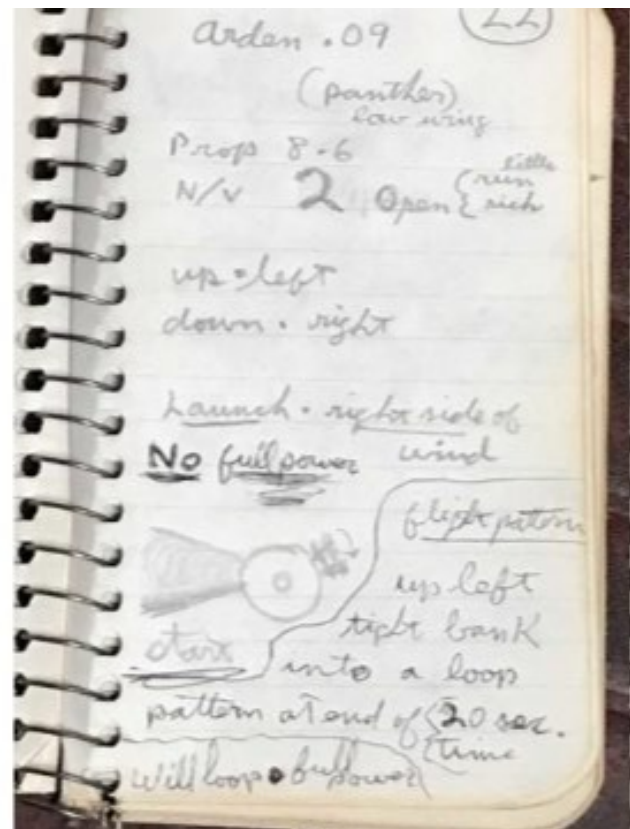 22
Arden .09
(panther)
low wing
Props 8-6
N/V 2 Open { little run rich
up • left
down • right
Launch • right side of
wind
No full power
flight pattern
up left
tight bank
start
into a loop
pattern at end of {20 sec.
time
Will loop • full power